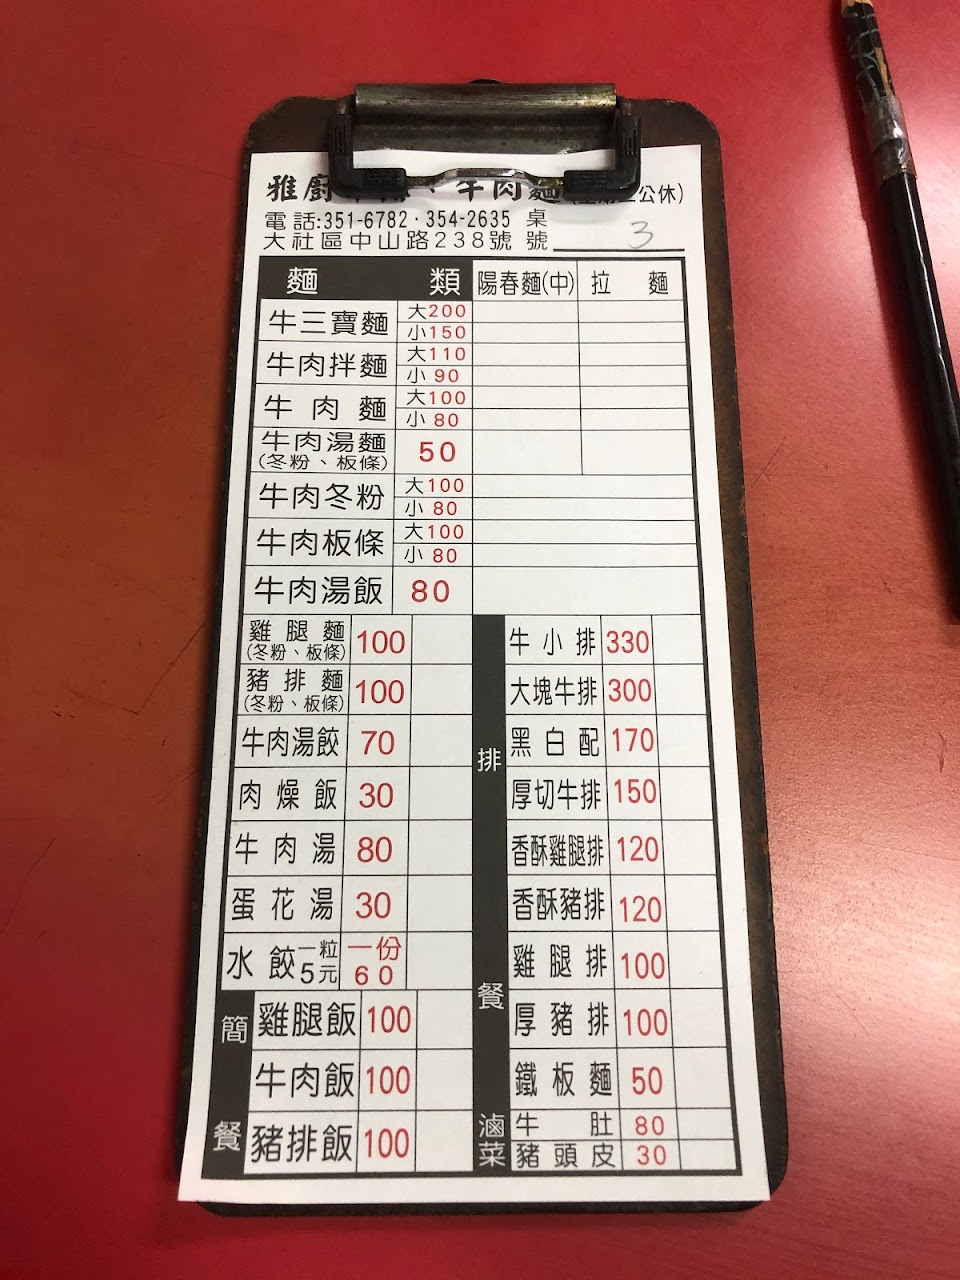 雅廚 牛肉麵 公休)
電話:351-6782·354-2635 桌
大社區中山路238號 號 3
麵 類 陽春麵(中) 拉 麵
牛三寶麵 大200
小150
牛肉拌麵 大110
小 90
牛肉麵 大100
小 80
牛肉湯麵 50
(冬粉、板條)
牛肉冬粉 大100
小 80
牛肉板條 大100
小 80
牛肉湯飯 80
雞腿麵 100
(冬粉、板條)
豬排麵 100
(冬粉、板條)
牛肉湯餃 70
肉燥飯 30
牛肉湯 80
蛋花湯 30
水餃 一粒5元 一份60
簡餐
雞腿飯 100
牛肉飯 100
豬排飯 100
排餐
牛小排 330
大塊牛排 300
黑白配 170
厚切牛排 150
香酥雞腿排 120
香酥豬排 120
雞腿排 100
厚豬排 100
鐵板麵 50
滷菜
牛肚 80
豬頭皮 30